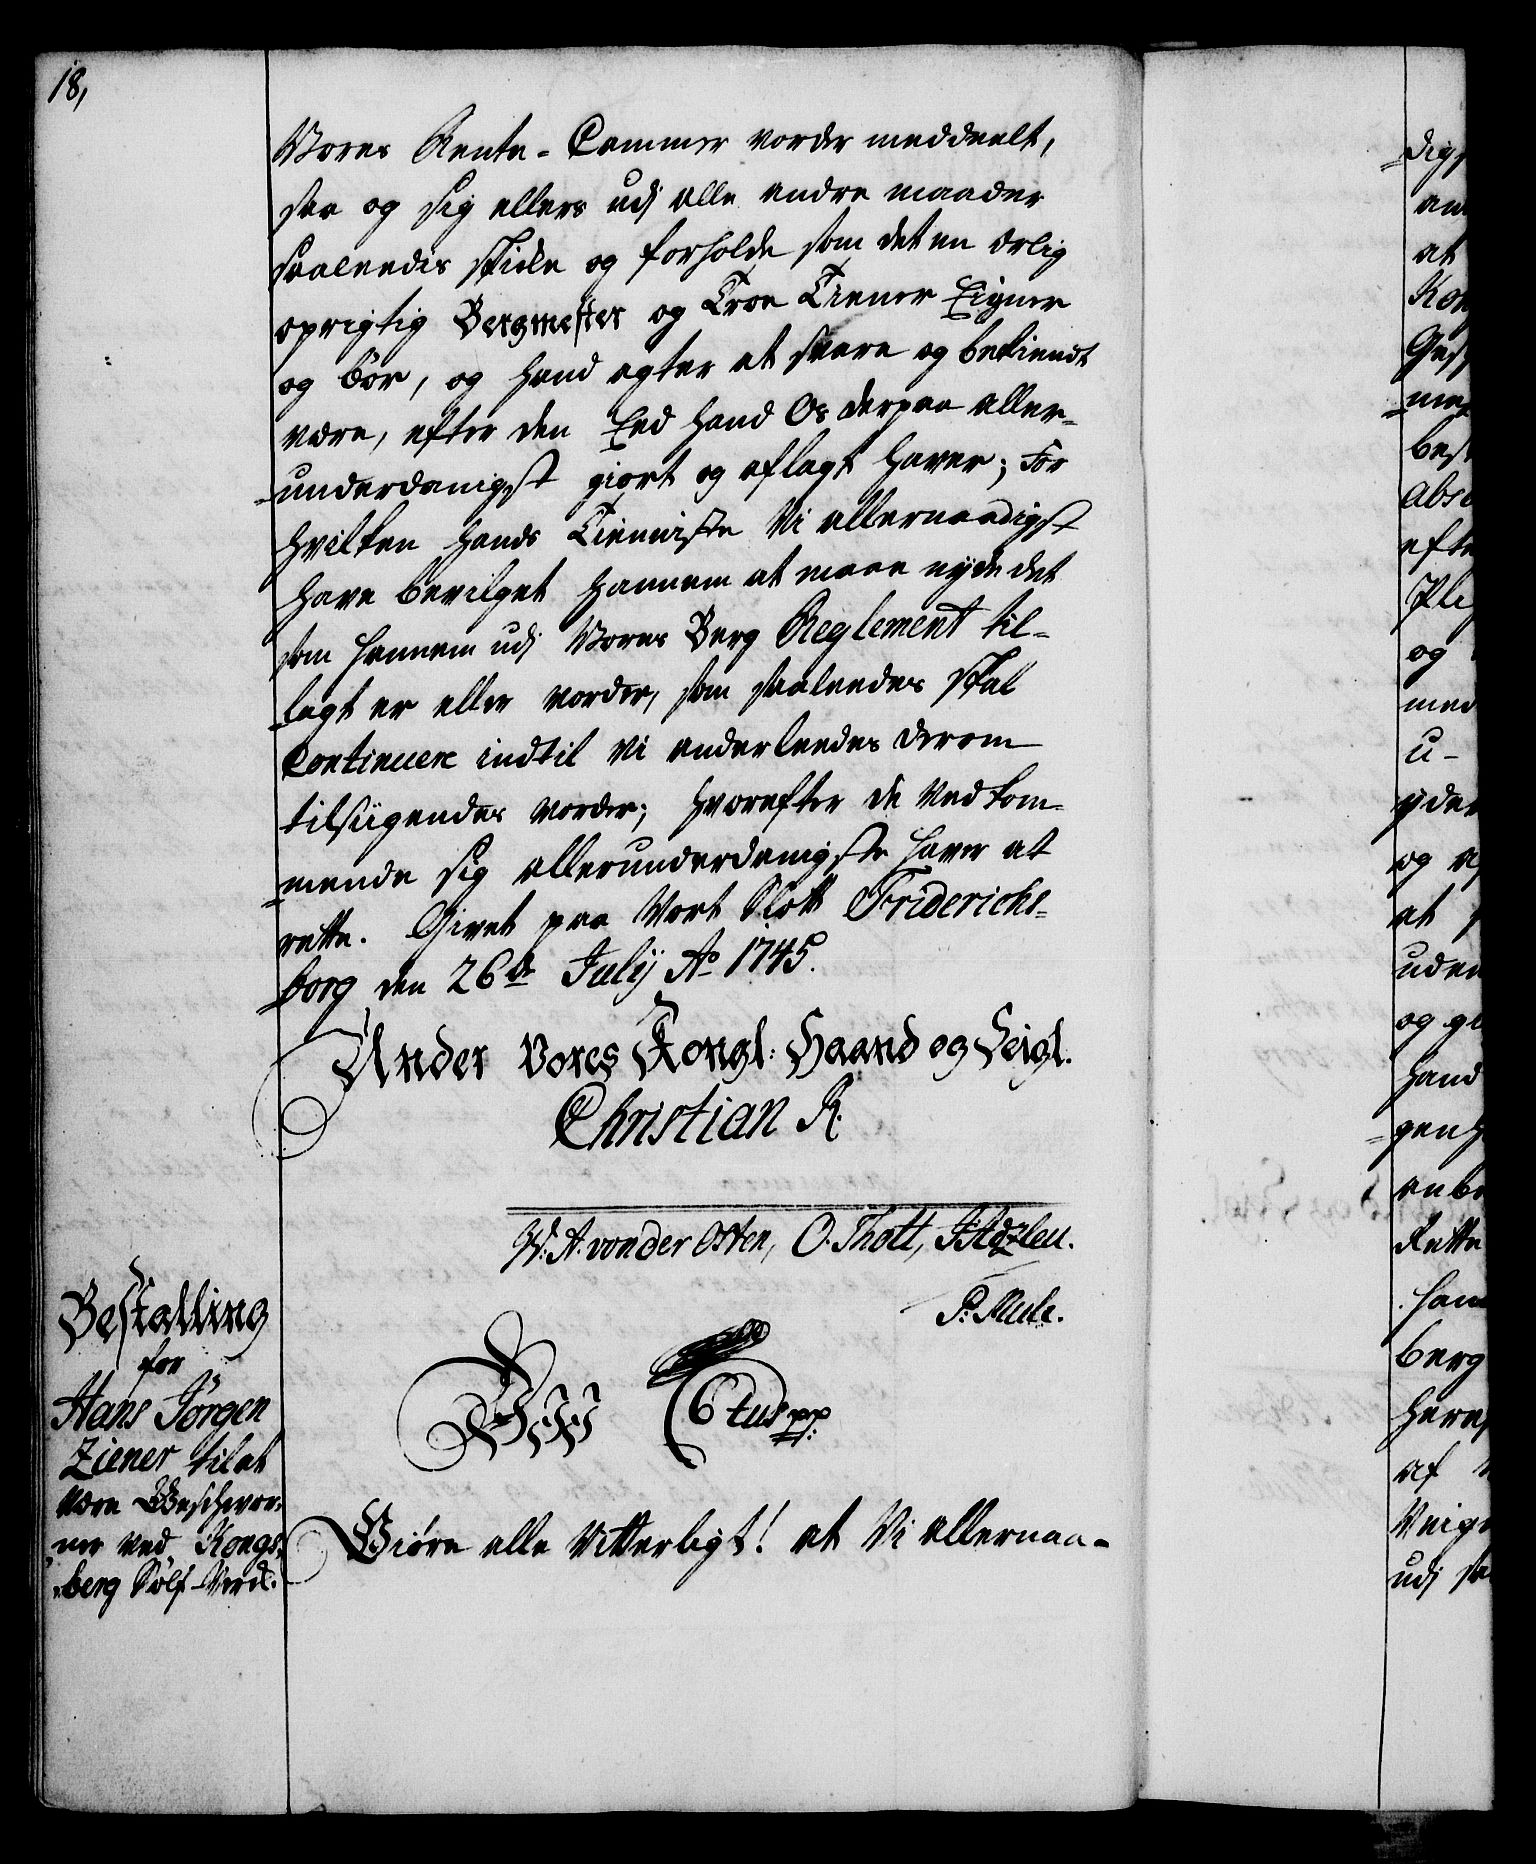 18,
Vores Rente-Cammer vorder meddeelt,
saa og sig ellers udj alle andre maader
saaleedis skicke og forholde som det en ærlig
oprigtig Bergmester og Troe Tiener Eigner
og bør, og hand agter at svare og bekiendt
være, efter den Eed hand Os derpaa aller-
underdanigst giort og aflagt haver; For
hvilken hands Tienniste Vi allernaadigst
have bevilget hannem at maae nyde det
som hannem udj Vores Berg Reglement til-
lagt er eller vorder, som saaleedes skal
Continuere indtil Vi anderleedes derom
tilsiigendes vorder; hvorefter de Vedkom-
mende sig allerunderdanigste haver at
rette. Givet paa Vort Slott Friderichs-
borg den 26de Julij Ao 1745.
Under Vores Kongl: Haand og Seigl.
Christian R.
W. A. von der Osten, O. Thott,
P. Mule.
Bestalling
for
Hans Jørgen
Ziener til at
være Geschwor-
ner ved Kongs-
berg Sølf-Verck.
Wii C 6tus pp:
Giøre alle Vitterligt! at Vi allernaa-
digs
an
at
Kon
Ges
me
best
Abse
efte
Pli
og
med
u-
yder
og
at
uden
og gi
hand
genh
anbe
Rette
ham
berg
heref
af
Veig
udj sa